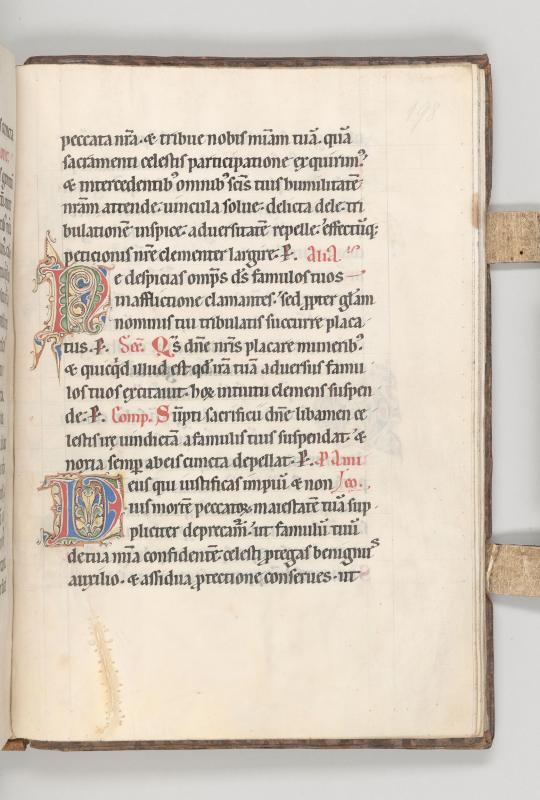 198
peccata nr̃a · ⁊ tribue nobis miam̄ tuā · quā
sacramenti celestis participatione exquirim᷒ ·
⁊ intercedentib᷒ omnib᷒ scīs tuis humilitatē
nrām attende · uincula solue · delicta dele · tri
bulationē inspice · aduersitatē repelle · effectūq;
peticionis nrē clementer largire · P. Alia
Ne despicias omps̄ ds̄ famulos tuos
in afflictione clamantes · sed ꝓpter gl̄am
nominis tui tribulatis succurre placa
tus · P. Sec̄. Qs̄ dnē nrīs placare munerib᷒
⁊ quicqd illud est qd irā tuā aduersus famu
los tuos excitauit · hoc intuitu clemens suspen
de · P. Comp. Sūpti sacrificii dnē libamen ce
lestis irę uindictā a famulis tuis suspendat · ⁊
noxia semp ab eis cuncta depellat · P. P ami
Deus qui iustificas impiū ⁊ non co.
uis mortē peccatoꝝ · maiestatē tuā sup
pliciter deprecam̄ · ut famulū tuū
de tua mīa confidentē celesti ꝓtegas benignus
auxilio · ⁊ assidua ꝓtectione conserues · ut